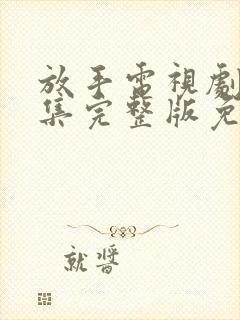 放手電視劇
集完整版免
就醬